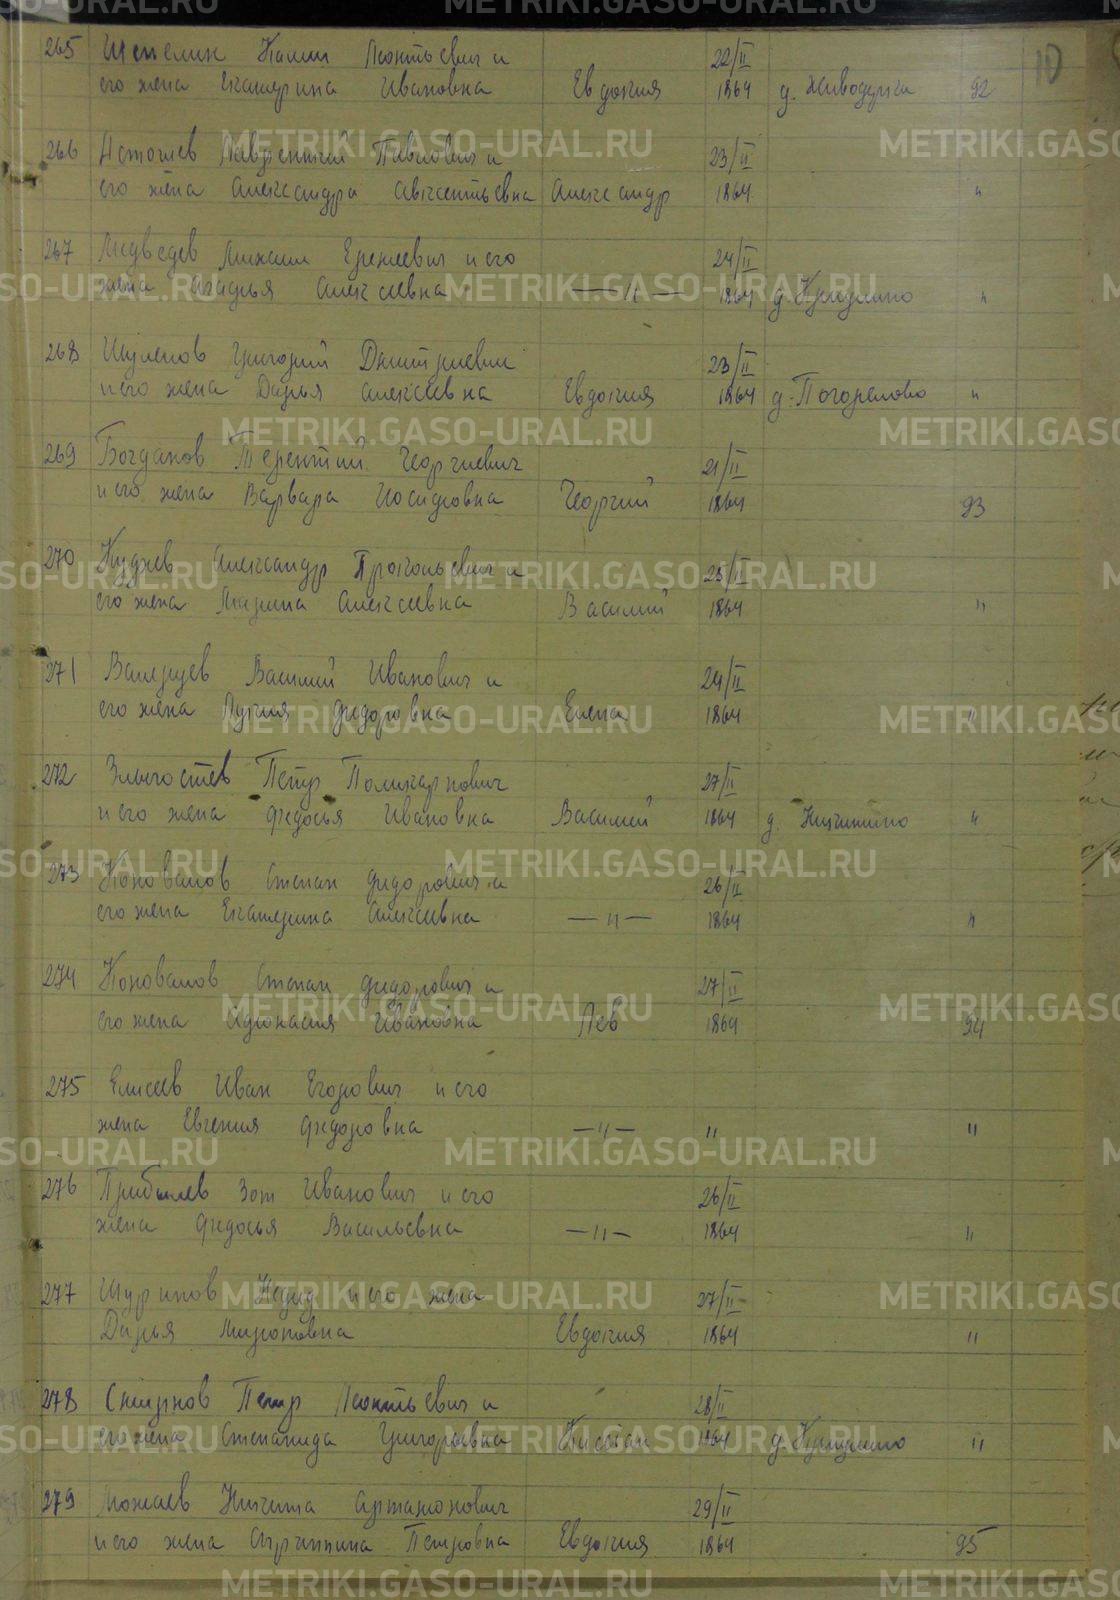 10
265 Шепелин Калин Леонтьевич и 22/II
его жена Екатерина Ивановна Евдокия 1864 д. Живодерка 92
266 Лаврентий Павлович и 23/II
его жена Александра Авксентьевна Александр 1864 "
267 Медведев Михаил Еремеевич и его 24/II
жена Агафья Алексеевна —"— 1864 д. Крицино "
268 Шулепов Григорий Дмитриевич 23/II
и его жена Дарья Алексеевна Евдокия 1864 д. Погорелово "
269 Богданов Терентий Георгиевич 21/II
и его жена Варвара Иосифовна Георгий 1864 93
270 Кудяев Александр Прокопьевич и 25/II
его жена Марина Алексеевна Василий 1864 "
271 Василий Иванович и 24/II
его жена Лукия Федоровна Елена 1864 "
272 Злыгостев Петр Поликарпович 27/II
и его жена Федосья Ивановна Василий 1864 д. Кичигино "
273 Коновалов Степан Федорович и 26/II
его жена Екатерина Алексеевна —"— 1864 "
274 Коновалов Степан Федорович и 27/II
его жена Афонасия Ивановна Лев 1864 94
275 Елисеев Иван Егорович и его
жена Евгения Федоровна —"— " "
276 Прибылев Зот Иванович и его 26/II
жена Федосья Васильевна —"— 1864 "
277 Шуринов и его жена 27/II
Дарья Мироновна Евдокия 1864 "
278 Смирнов Петр Леонтьевич и 28/II
его жена Степанида Григорьевна Кисиан 1864 д. "
279 Можаев Никита Артамонович 29/II
и его жена Агрипина Петровна Евдокия 1864 95
METRIKI.GASO-URAL.RU